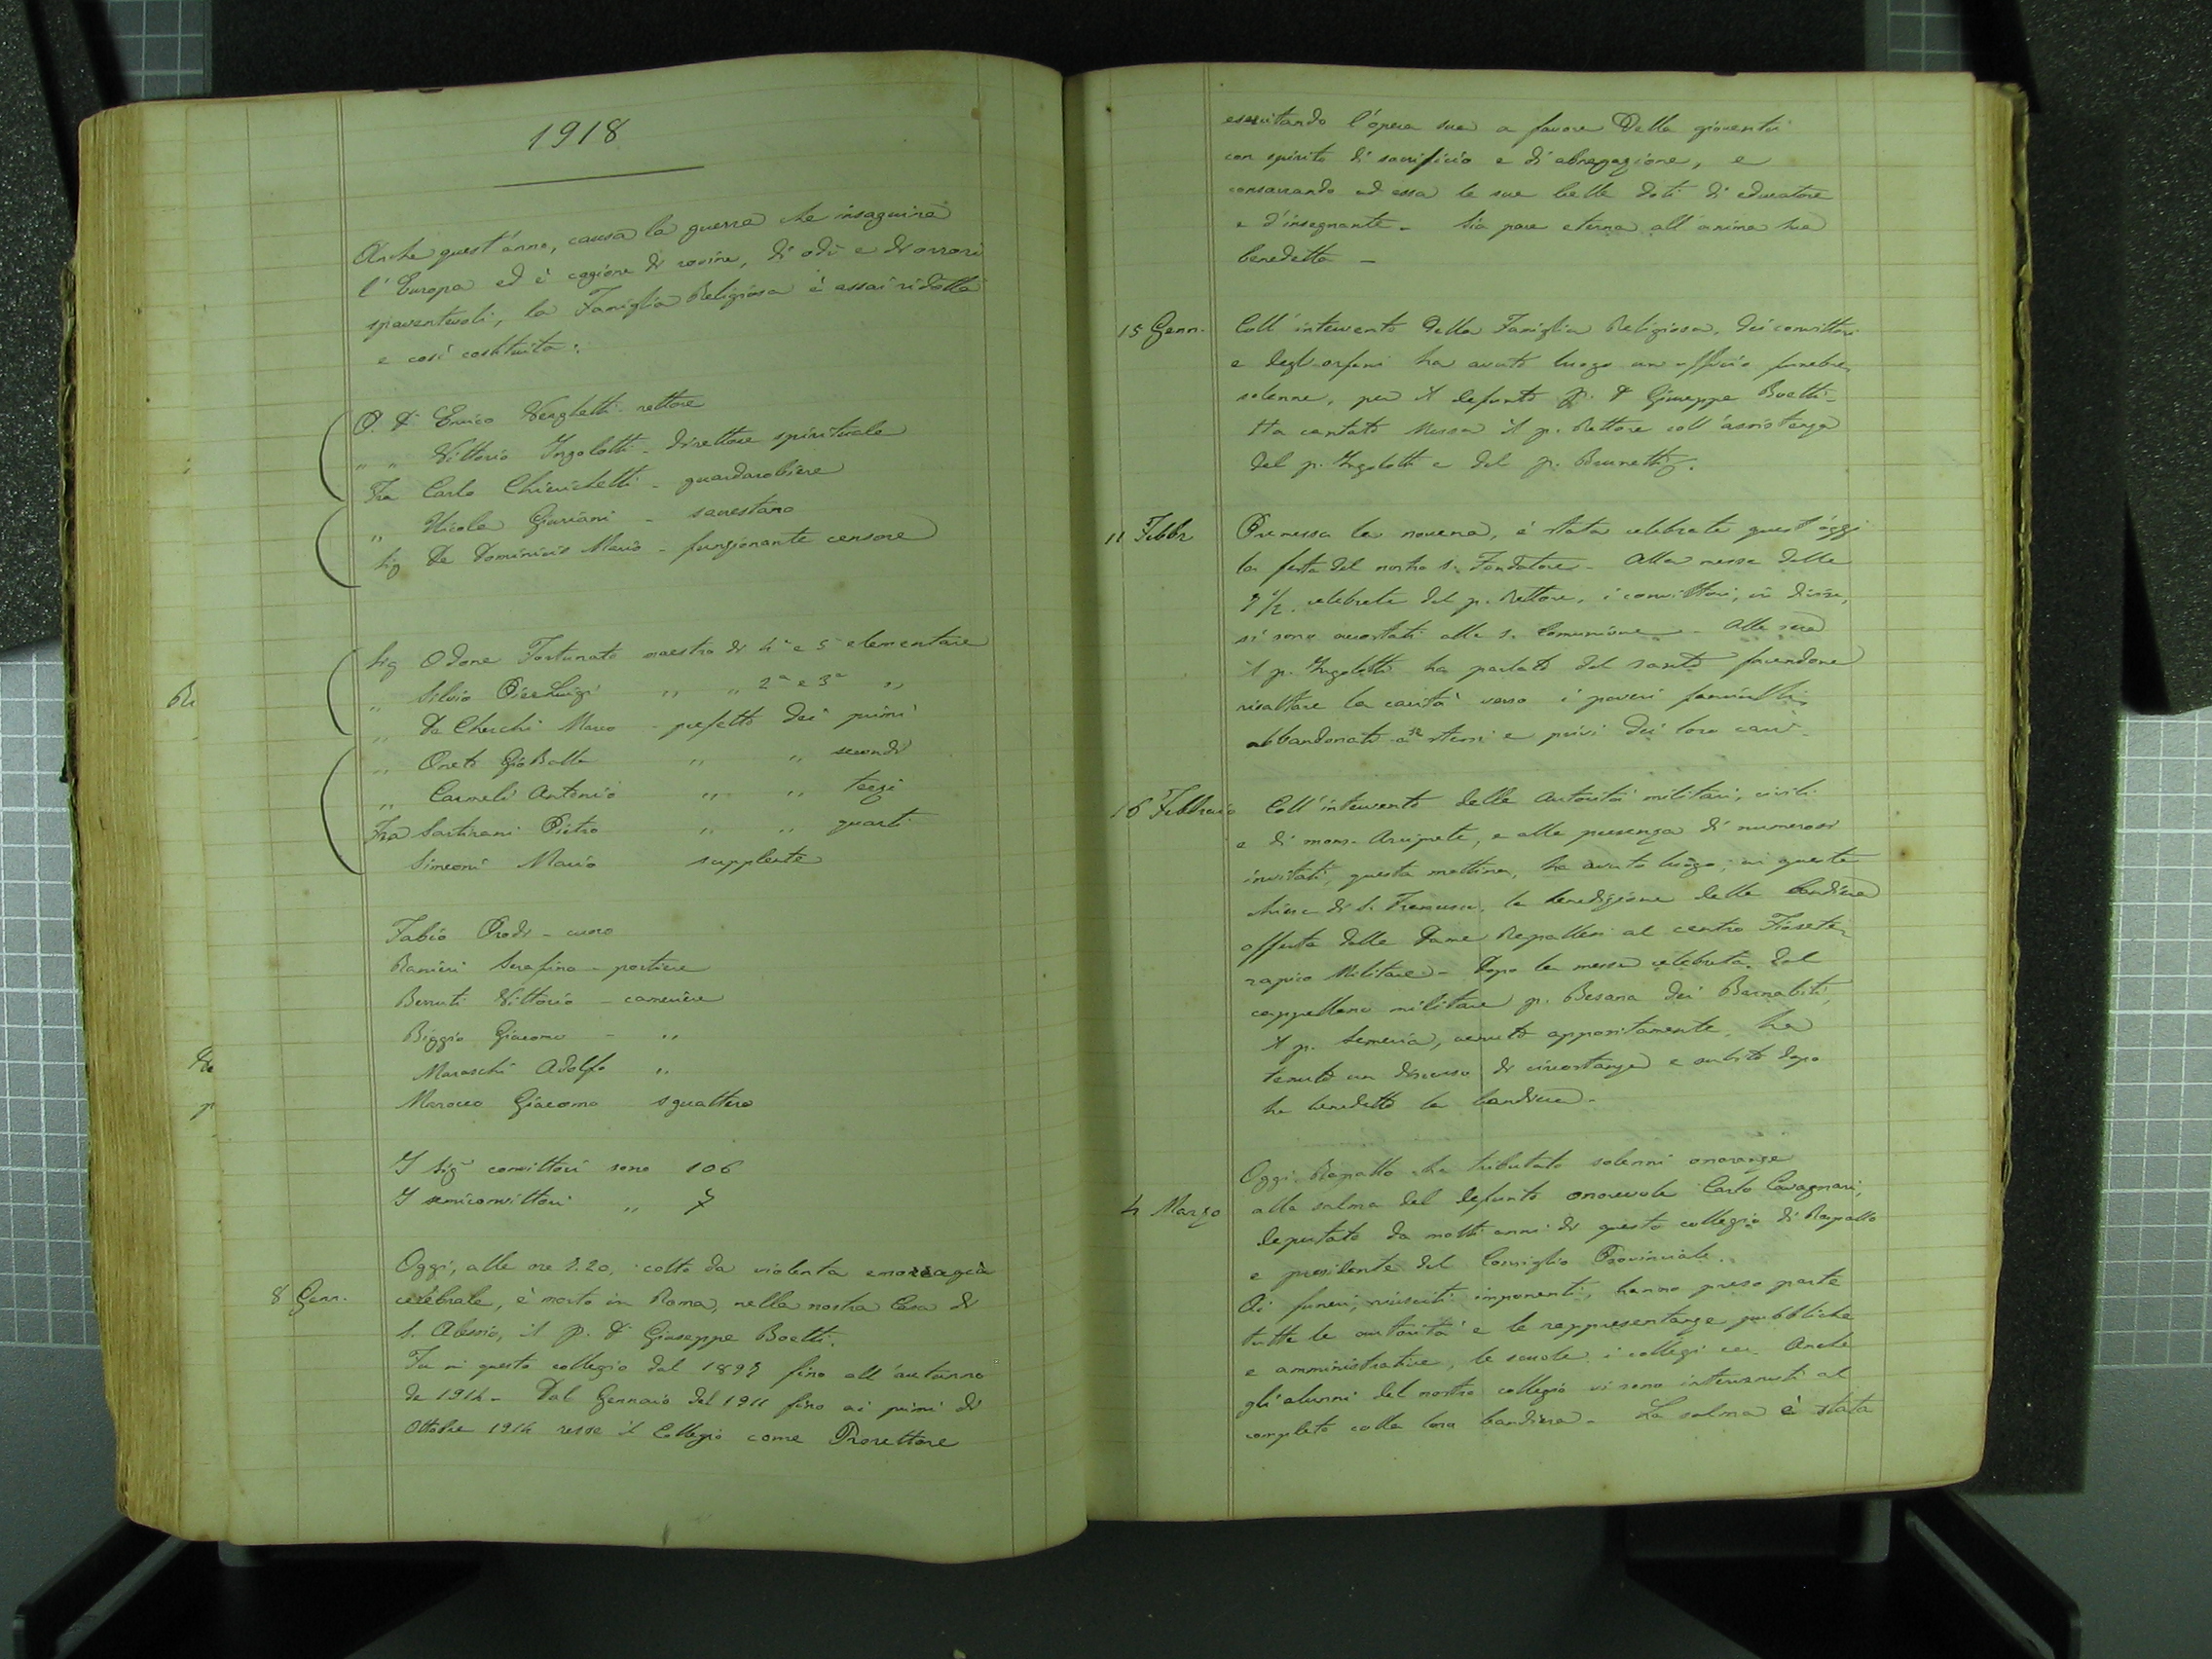 1918
Anche quest'anno, causa la guerra che insaguina
l'Europa ed è cagione di rovine, di odî e di orrori
spaventevoli, la Famiglia Religiosa è assai ridotta
e così costituita:
P. D. Enrico Verghetti - rettore
" " Vittorio Ingolotti - direttore spirituale
Fra Carlo Chierichetti - guardarobiere
" Nicola Giuriani - sacrestano
Sig De Dominicis Mario - funzionante censore
Sig Odone Fortunato maestro di 4ª e 5ª elementare
" Silvio Pier Luigi " " 2ª e 3ª "
" De Cherchi Marco - prefetto dei primi
" Oneto Gio Batta " " secondi
" Carmeli Antonio " " terzi
Fra Sartirani Pietro " " quarti
Simeoni Mario supplente
Fabio Prodi - cuoco
Ranieri Serafino - portiere
Berruti Vittorio - cameriere
Biggio Giacomo - "
Maraschi Adolfo "
Marocco Giacomo sguattero
I Sigⁱ convittori sono 106
I semiconvittori " 7
8 Genn. Oggi, alle ore 2.20, colto da violenta emorragia
celebrale, è morto in Roma, nella nostra Casa di
S. Alessio, il p. D. Giuseppe Boetti.
Fu in questo collegio dal 1897 fino all'autunno
de 1914 - Dal Gennaio del 1911 fino ai primi di
Ottobre 1914 resse il Collegio come Prorettore
esercitando l'opera sua a favore della gioventù
con spirito di sacrificio e di abnegazione, e
consacrando ad essa le sue belle doti di educatore
e d'insegnante - Sia pace eterna all'anima sua
benedetta -
15 Genn. Coll'intervento della Famiglia Religiosa, dei convittori
e degli orfani ha avuto luogo un officio funebre
solenne, per il defunto p. D. Giuseppe Boetti -
Ha cantato Messa il p. Rettore coll'assistenza
del p. Ingolotti e del p. Brunetti.
11 Febbr Premessa la novena, è stata celebrata quest'oggi
la festa del nostro S. Fondatore - Alla messa delle
7 1/2 celebrata dal p. Rettore, i convittori, in divisa,
si sono accostati alla S. Comunione - Alla sera
il p. Ingolotti ha parlato del santo facendone
risaltare la carità verso i poveri fanciulli
abbandonati a se stessi e privi dei loro cari -
16 Febbraio Coll'intervento delle autorità militari, civili
e di mons. Arciprete, e alla presenza di numerosi
invitati, questa mattina, ha avuto luogo, in questa
chiesa di S. Francesco, la benedizione della bandiera
offerta dalle Dame Rapallesi al centro Fisiote-
rapico Militare - Dopo la messa celebrata dal
cappellano militare p. Besana dei Barnabiti,
il p. Semeria, venuto appositamente, ha
tenuto un discorso di circostanza e subito dopo
ha benedetto la bandiera -
4 Marzo Oggi Rapallo ha tributato solenni onoranze
alla salma del defunto onorevole Carlo Cavagnari,
deputato da molti anni di questo collegio di Rapallo
e presidente del Consiglio Provinciale.
Ai funeri, riusciti imponenti, hanno preso parte
tutte le autorità e le rappresentanze pubbliche
e amministrative, le scuole i collegi ecc. Anche
gli alunni del nostro collegio vi sono intervenuti al
completo colla loro bandiera - La salma è stata